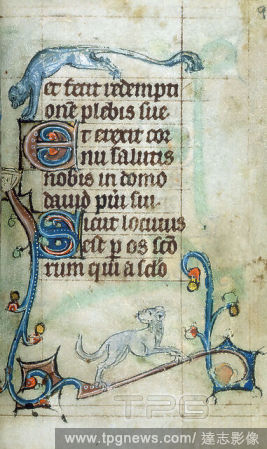 9
et fecit redempti
onē plebis sue
Et erexit cor
nu salutis
nobis in domo
dauid pūi sui
Sicut locutus
est p os scō
rum qui a sclo
TPG
www.tpgnews.com / 達志影像